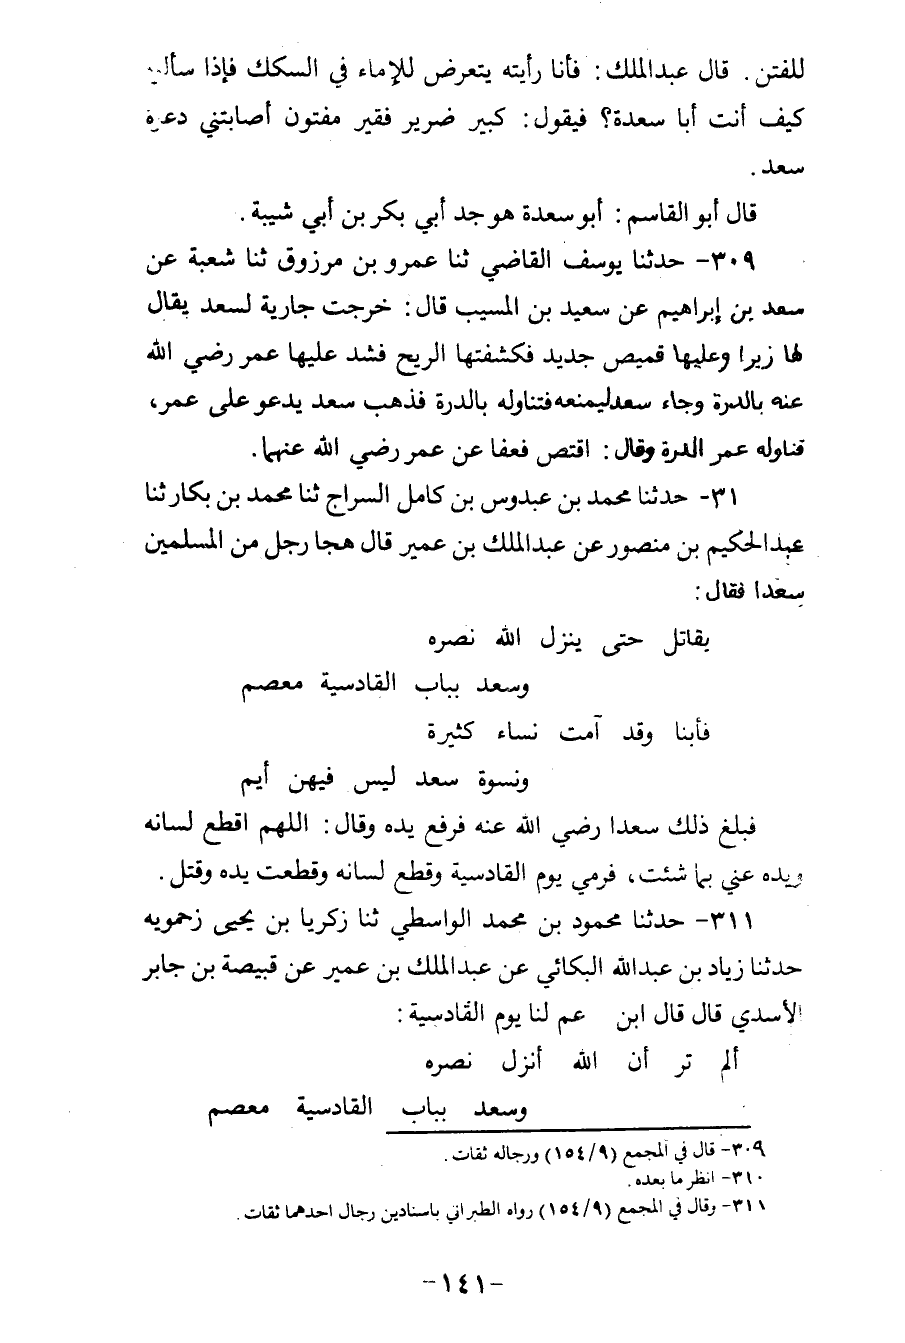 للفتن. قال عبدالملك: فأنا رأيته يتعرض للإماء في السكك فإذا
كيف أنت أبا سعدة؟ فيقول: كبير ضرير فقير مفتون أصابتني دعوة
سعد.
قال أبو القاسم: أبو سعدة هو جد أبي بكر بن أبي شيبة.
٣٠٩- حدثنا يوسف القاضي ثنا عمرو بن مرزوق ثنا شعبة عن
سعد بن إبراهيم عن سعيد بن المسيب قال: خرجت جارية لسعد يقال
لها زيرا وعليها قميص جديد فكشفتها الريح فشد عليها عمر رضي الله
عنه بالدرة وجاء سعد ليمنعه فتناوله بالدرة فذهب سعد يدعو على عمر،
فناوله عمر الدرة وقال: اقتص فعفا عن عمر رضي الله عنهما.
٣١- حدثنا محمد بن عبدوس بن كامل السراج ثنا محمد بن بكار ثنا
عبدالحكيم بن منصور عن عبدالملك بن عمير قال هجا رجل من المسلمين
سعدا فقال:
يقاتل حتى ينزل الله نصره
وسعد بباب القادسية معصم
فأبنا وقد آمت نساء كثيرة
ونسوة سعد ليس فيهن أيم
فبلغ ذلك سعدا رضي الله عنه فرفع يده وقال: اللهم اقطع لسانه
ويده عني بما شئت، فرمي يوم القادسية وقطع لسانه وقطعت يده وقتل.
٣١١- حدثنا محمود بن محمد الواسطي ثنا زكريا بن يحيى زحمويه
حدثنا زياد بن عبدالله البكائي عن عبدالملك بن عمير عن قبيصة بن جابر
الأسدي قال قال ابن عم لنا يوم القادسية:
ألم تر أن الله أنزل نصره
وسعد بباب القادسية معصم
٣٠٩- قال في المجمع (١٥٤/٩) ورجاله ثقات.
٣١٠- انظر ما بعده.
٣١١- وقال في المجمع (١٥٤/٩) رواه الطبراني باسنادين رجال احدهما ثقات.
-١٤١-